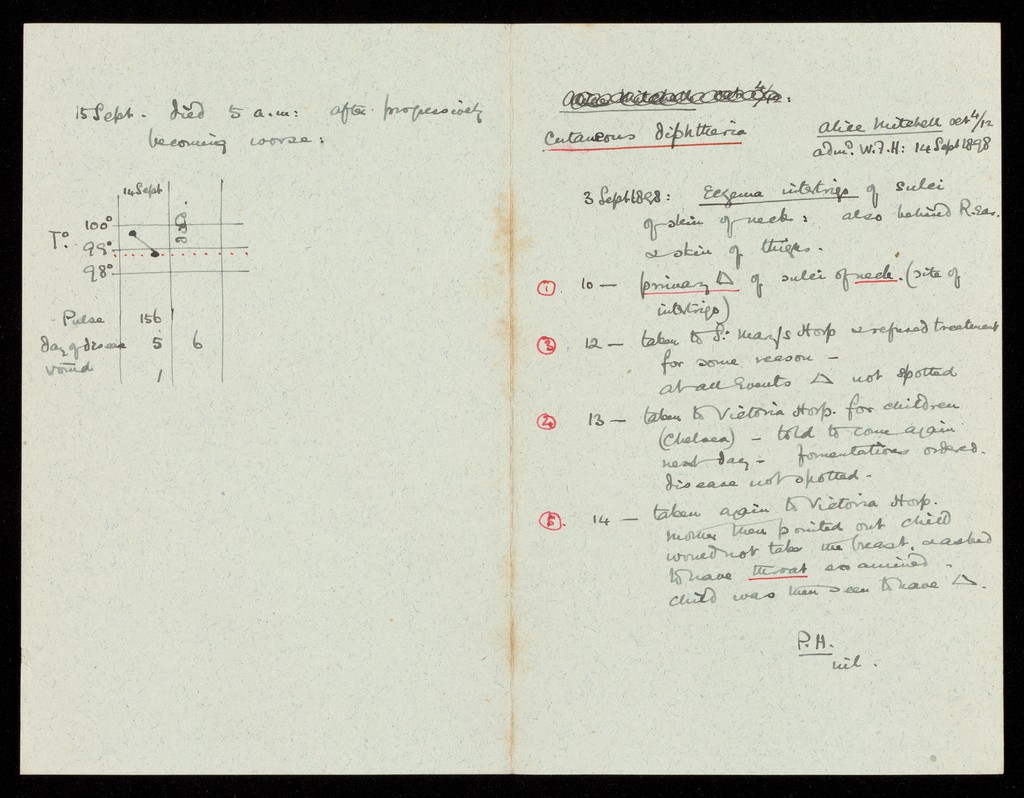 15 Sept. died 5 a.m: after progressively
becoming worse:
14 Sept
T.° 100°
99°
98°
Pulse 156
day of disease 5 6
vomd 1
Alice Mitchell aet 4/12:
Cutaneous diphtheria
Alice Mitchell aet 4/12
admd. W.F.H: 14 Sept 1898
3 Sept 1898: Eczema intertrigo of sulci
of skin of neck: also behind R. ear.
& skin of thighs.
① 10 — primary △ of sulci of neck. (site of
intertrigo)
③ 12 — taken to St. Mary's Hosp & refused treatment
for some reason —
at all events △ not spotted
13 — taken to Victoria Hosp. for children
(Chelsea) — told to come again
next day — fomentations ordered.
disease not spotted.
⑤. 14 — taken again to Victoria Hosp.
mother then pointed out child
would not take the breast, & asked
to have throat examined.
child was then seen to have △.
P.H.
nil.